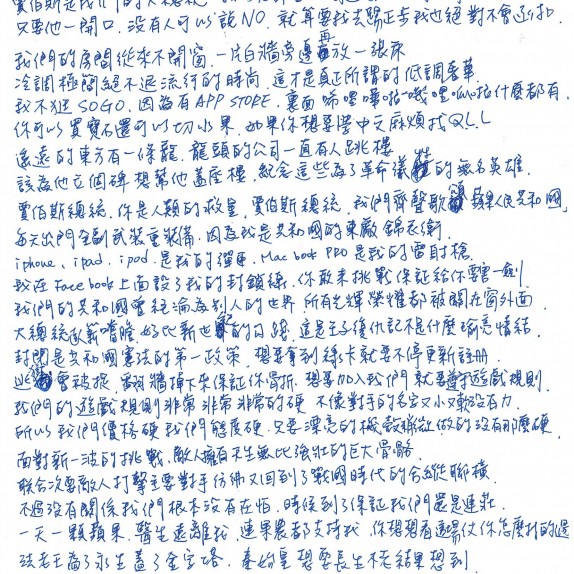 賈伯斯是我們的大總統
只要他一開口,沒有人可以說NO,就算要我去踢正步我也絕對不會還扣
我們的房間從來不開窗,一片白牆旁邊再放一張床
冷調極簡絕不退流行的時尚,這才是真正所謂的低調奢華
我不逛SOGO,因為有APP STORE,裏面唏哩嘩啦嘰哩呱啦什麼都有
你可以買寶石還可以切水果,如果你想要學中文麻煩找QLL
遙遠的東方有一條龍,龍頭的公司一直有人跳樓
該為他立個碑想幫他蓋座樓,紀念這些為了革命犧牲的無名英雄
賈伯斯總統,你是人類的救星,賈伯斯總統,我們齊聲歌頌 蘋果人民共和國
每天出門全副武裝重裝備,因為我是共和國的東廠錦衣衛
iphone, ipad, ipod,是我的彈藥,Mac book PRO是我的雷射槍
我在Facebook上面設了我的封鎖線,你敢來挑戰保證給你轄一劍
我們的共和國曾經淪為別人的世界,所有光輝榮耀都被關在窗外面
大總統臥薪嚐膽,好比新世界的勾踐,這是王子復仇記不是什麼瑜亮情結
封閉是共和國憲法的第一政策,想要拿到綠卡就要不停更新註冊
逃獄會被抓,翻牆掉下來保證你骨折,想要加入我們就要遵守遊戲規則
我們的遊戲規則非常非常非常的硬,不像對手的名字又小又軟沒有力
所以我們價格硬我們態度硬,只要漂亮的機殼線做的沒有那麼硬
面對新一波的挑戰,敵人擁有天生無比強壯的巨大骨骼
聯合次要敵人打擊主要對手仿彿又回到了戰國時代的合縱聯橫
不過沒有關係我們根本沒有在怕,時候到了保證我們還是連莊
一天一顆蘋果,醫生遠離我,連果農都支持我,你想想看這場仗你怎麼打的過
法老王為了永生蓋了金字塔,秦始皇想要長生不老結果想到